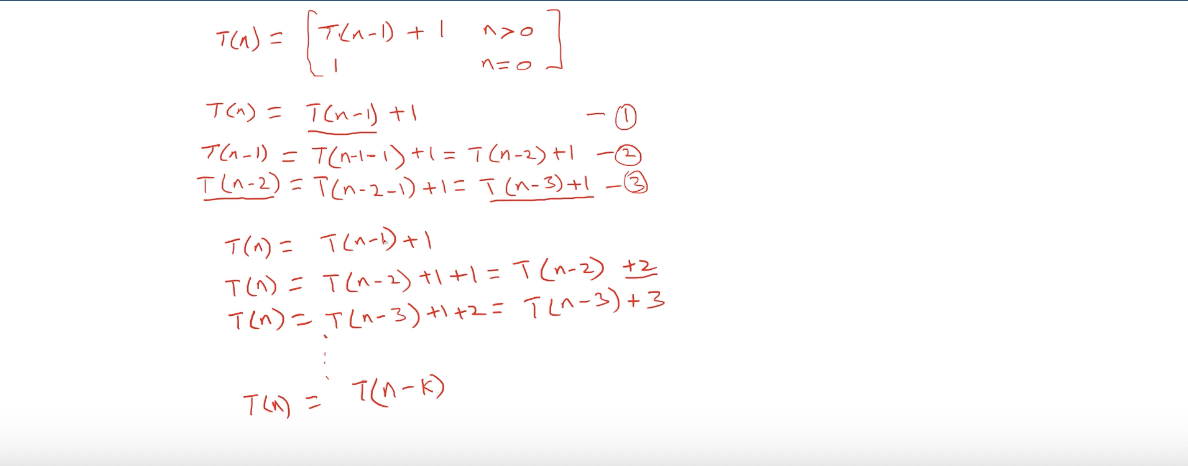 T(n) = [ T(n-1) + 1 n>0
1 n=0 ]
T(n) = T(n-1) +1 - ①
T(n-1) = T(n-1-1) +1 = T(n-2) +1 - ②
T(n-2) = T(n-2-1) +1 = T(n-3)+1 - ③
T(n) = T(n-1)+1
T(n) = T(n-2) +1 +1 = T(n-2) +2
T(n) = T(n-3) +1 +2 = T(n-3) + 3
⋮
T(n) = T(n-k)